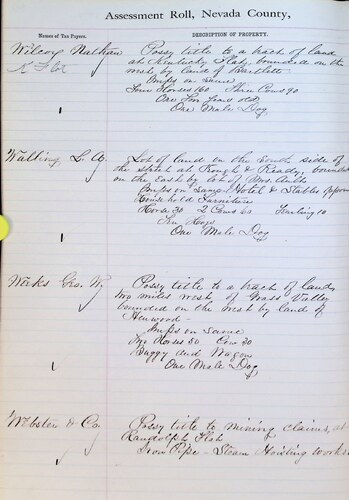 Assessment Roll, Nevada County,
Names of Tax Payers.
DESCRIPTION OF PROPERTY.
Wilcox Nathan
K Flat
Possy title to a tract of land
at Kentucky Flat, bounded on the
west by land of Bartlett
Imps on same
Four Horses 160 Three Cows 90
One Two Years old
One Male Dog
1
Walling L. A.
Lot of land on the South side of
the street at Rough & Ready, bounded
on the East by lot of Mrs. Ault
Imps on same Hotel & Stables oppo
Household Furniture
Horse 30 2 Cows 60 Yearling 10
Ten Hogs
One Male Dog
1
Weeks Geo. W.
Possy title to a tract of land
two miles west of Grass Valley
bounded on the west by land of
Henwood -
Imps on same
Two Horses 50 Cow 30
Buggy and Wagon
One Male Dog
1
Webster & Co
Possy title to mining claims, at
Randolph Flat
Iron Pipe - Steam Hoisting works